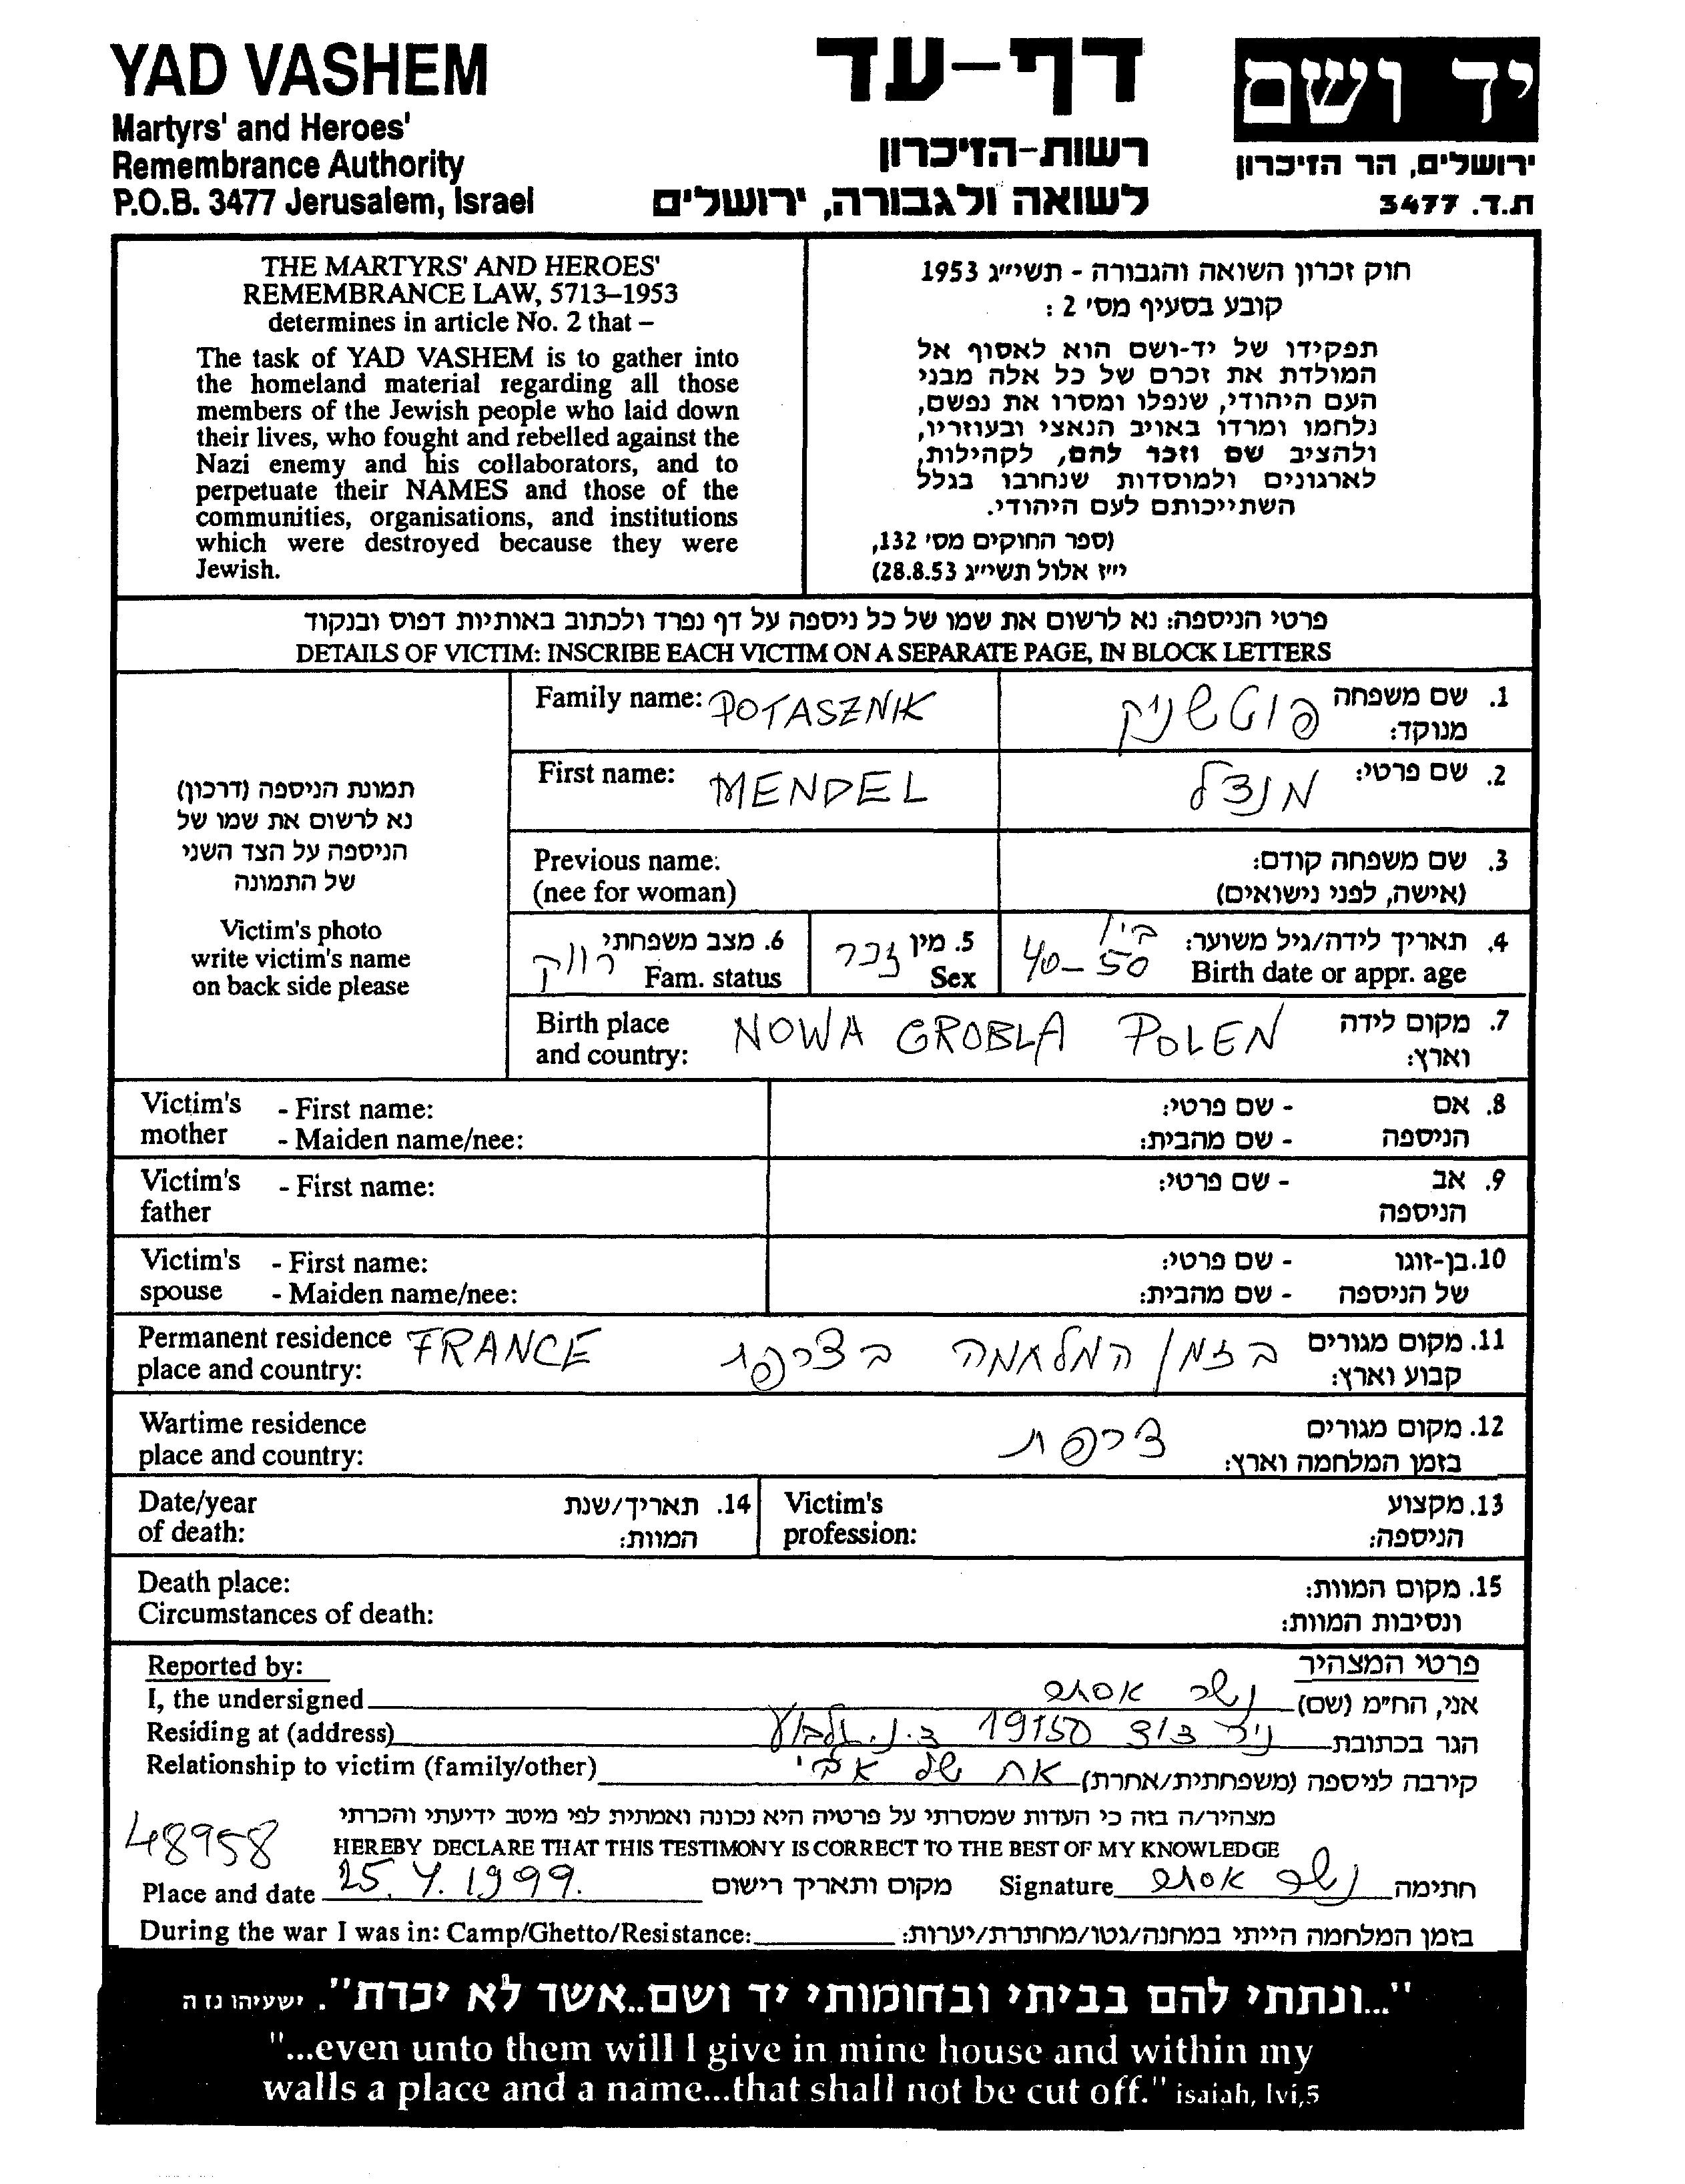 YAD VASHEM
Martyrs' and Heroes'
Remembrance Authority
P.O.B. 3477 Jerusalem, Israel
דף-עד
רשות-הזיכרון
לשואה ולגבורה, ירושלים
יד ושם
ירושלים, הר הזיכרון
ת.ד. 3477
THE MARTYRS' AND HEROES'
REMEMBRANCE LAW, 5713–1953
determines in article No. 2 that –
The task of YAD VASHEM is to gather into
the homeland material regarding all those
members of the Jewish people who laid down
their lives, who fought and rebelled against the
Nazi enemy and his collaborators, and to
perpetuate their NAMES and those of the
communities, organisations, and institutions
which were destroyed because they were
Jewish.
חוק זכרון השואה והגבורה - תשי״ג 1953
קובע בסעיף מס' 2 :
תפקידו של יד-ושם הוא לאסוף אל
המולדת את זכרם של כל אלה מבני
העם היהודי, שנפלו ומסרו את נפשם,
נלחמו ומרדו באויב הנאצי ובעוזריו,
ולהציב שם וזכר להם, לקהילות,
לארגונים ולמוסדות שנחרבו בגלל
השתייכותם לעם היהודי.
(ספר החוקים מס' 132,
י״ז אלול תשי״ג 28.8.53)
פרטי הניספה: נא לרשום את שמו של כל ניספה על דף נפרד ולכתוב באותיות דפוס ובנקוד
DETAILS OF VICTIM: INSCRIBE EACH VICTIM ON A SEPARATE PAGE, IN BLOCK LETTERS
תמונת הניספה (דרכון)
נא לרשום את שמו של
הניספה על הצד השני
של התמונה
Victim's photo
write victim's name
on back side please
Family name: POTASZNIK
1. שם משפחה פוטשניק
מנוקד:
First name: MENDEL
2. שם פרטי: מנדל
Previous name:
(nee for woman)
3. שם משפחה קודם:
(אישה, לפני נישואים)
4. תאריך לידה/גיל משוער: בין
Birth date or appr. age 40-50
5. מין זכר
Sex
6. מצב משפחתי רווק
Fam. status
Birth place
and country: NOWA GROBLA POLEN
7. מקום לידה
וארץ:
Victim's - First name:
mother - Maiden name/nee:
8. אם - שם פרטי:
הניספה - שם מהבית:
Victim's - First name:
father
9. אב - שם פרטי:
הניספה
Victim's - First name:
spouse - Maiden name/nee:
10. בן-זוגו - שם פרטי:
של הניספה - שם מהבית:
Permanent residence FRANCE
place and country:
11. מקום מגורים בזמן המלחמה בצרפת
קבוע וארץ:
Wartime residence
place and country:
12. מקום מגורים צרפת
בזמן המלחמה וארץ:
Date/year
of death:
14. תאריך/שנת
המוות:
Victim's
profession:
13. מקצוע
הניספה:
Death place:
Circumstances of death:
15. מקום המוות:
ונסיבות המוות:
Reported by:
פרטי המצהיר
I, the undersigned
אני, הח״מ (שם) נשר אסתר
Residing at (address)
הגר בכתובת 19150 ד.נ. גלבוע
Relationship to victim (family/other)
קירבה לניספה (משפחתית/אחרת) אח של אבי
מצהיר/ה בזה כי העדות שמסרתי על פרטיה היא נכונה ואמתית לפי מיטב ידיעתי והכרתי
48958
HEREBY DECLARE THAT THIS TESTIMONY IS CORRECT TO THE BEST OF MY KNOWLEDGE
Place and date 25.4.1999. מקום ותאריך רישום
Signature נשר אסתר חתימה
During the war I was in: Camp/Ghetto/Resistance:
בזמן המלחמה הייתי במחנה/גטו/מחתרת/יערות:
"...ונתתי להם בביתי ובחומותי יד ושם..אשר לא יכרת". ישעיהו נז ה
"...even unto them will I give in mine house and within my
walls a place and a name...that shall not be cut off." isaiah, lvi,5